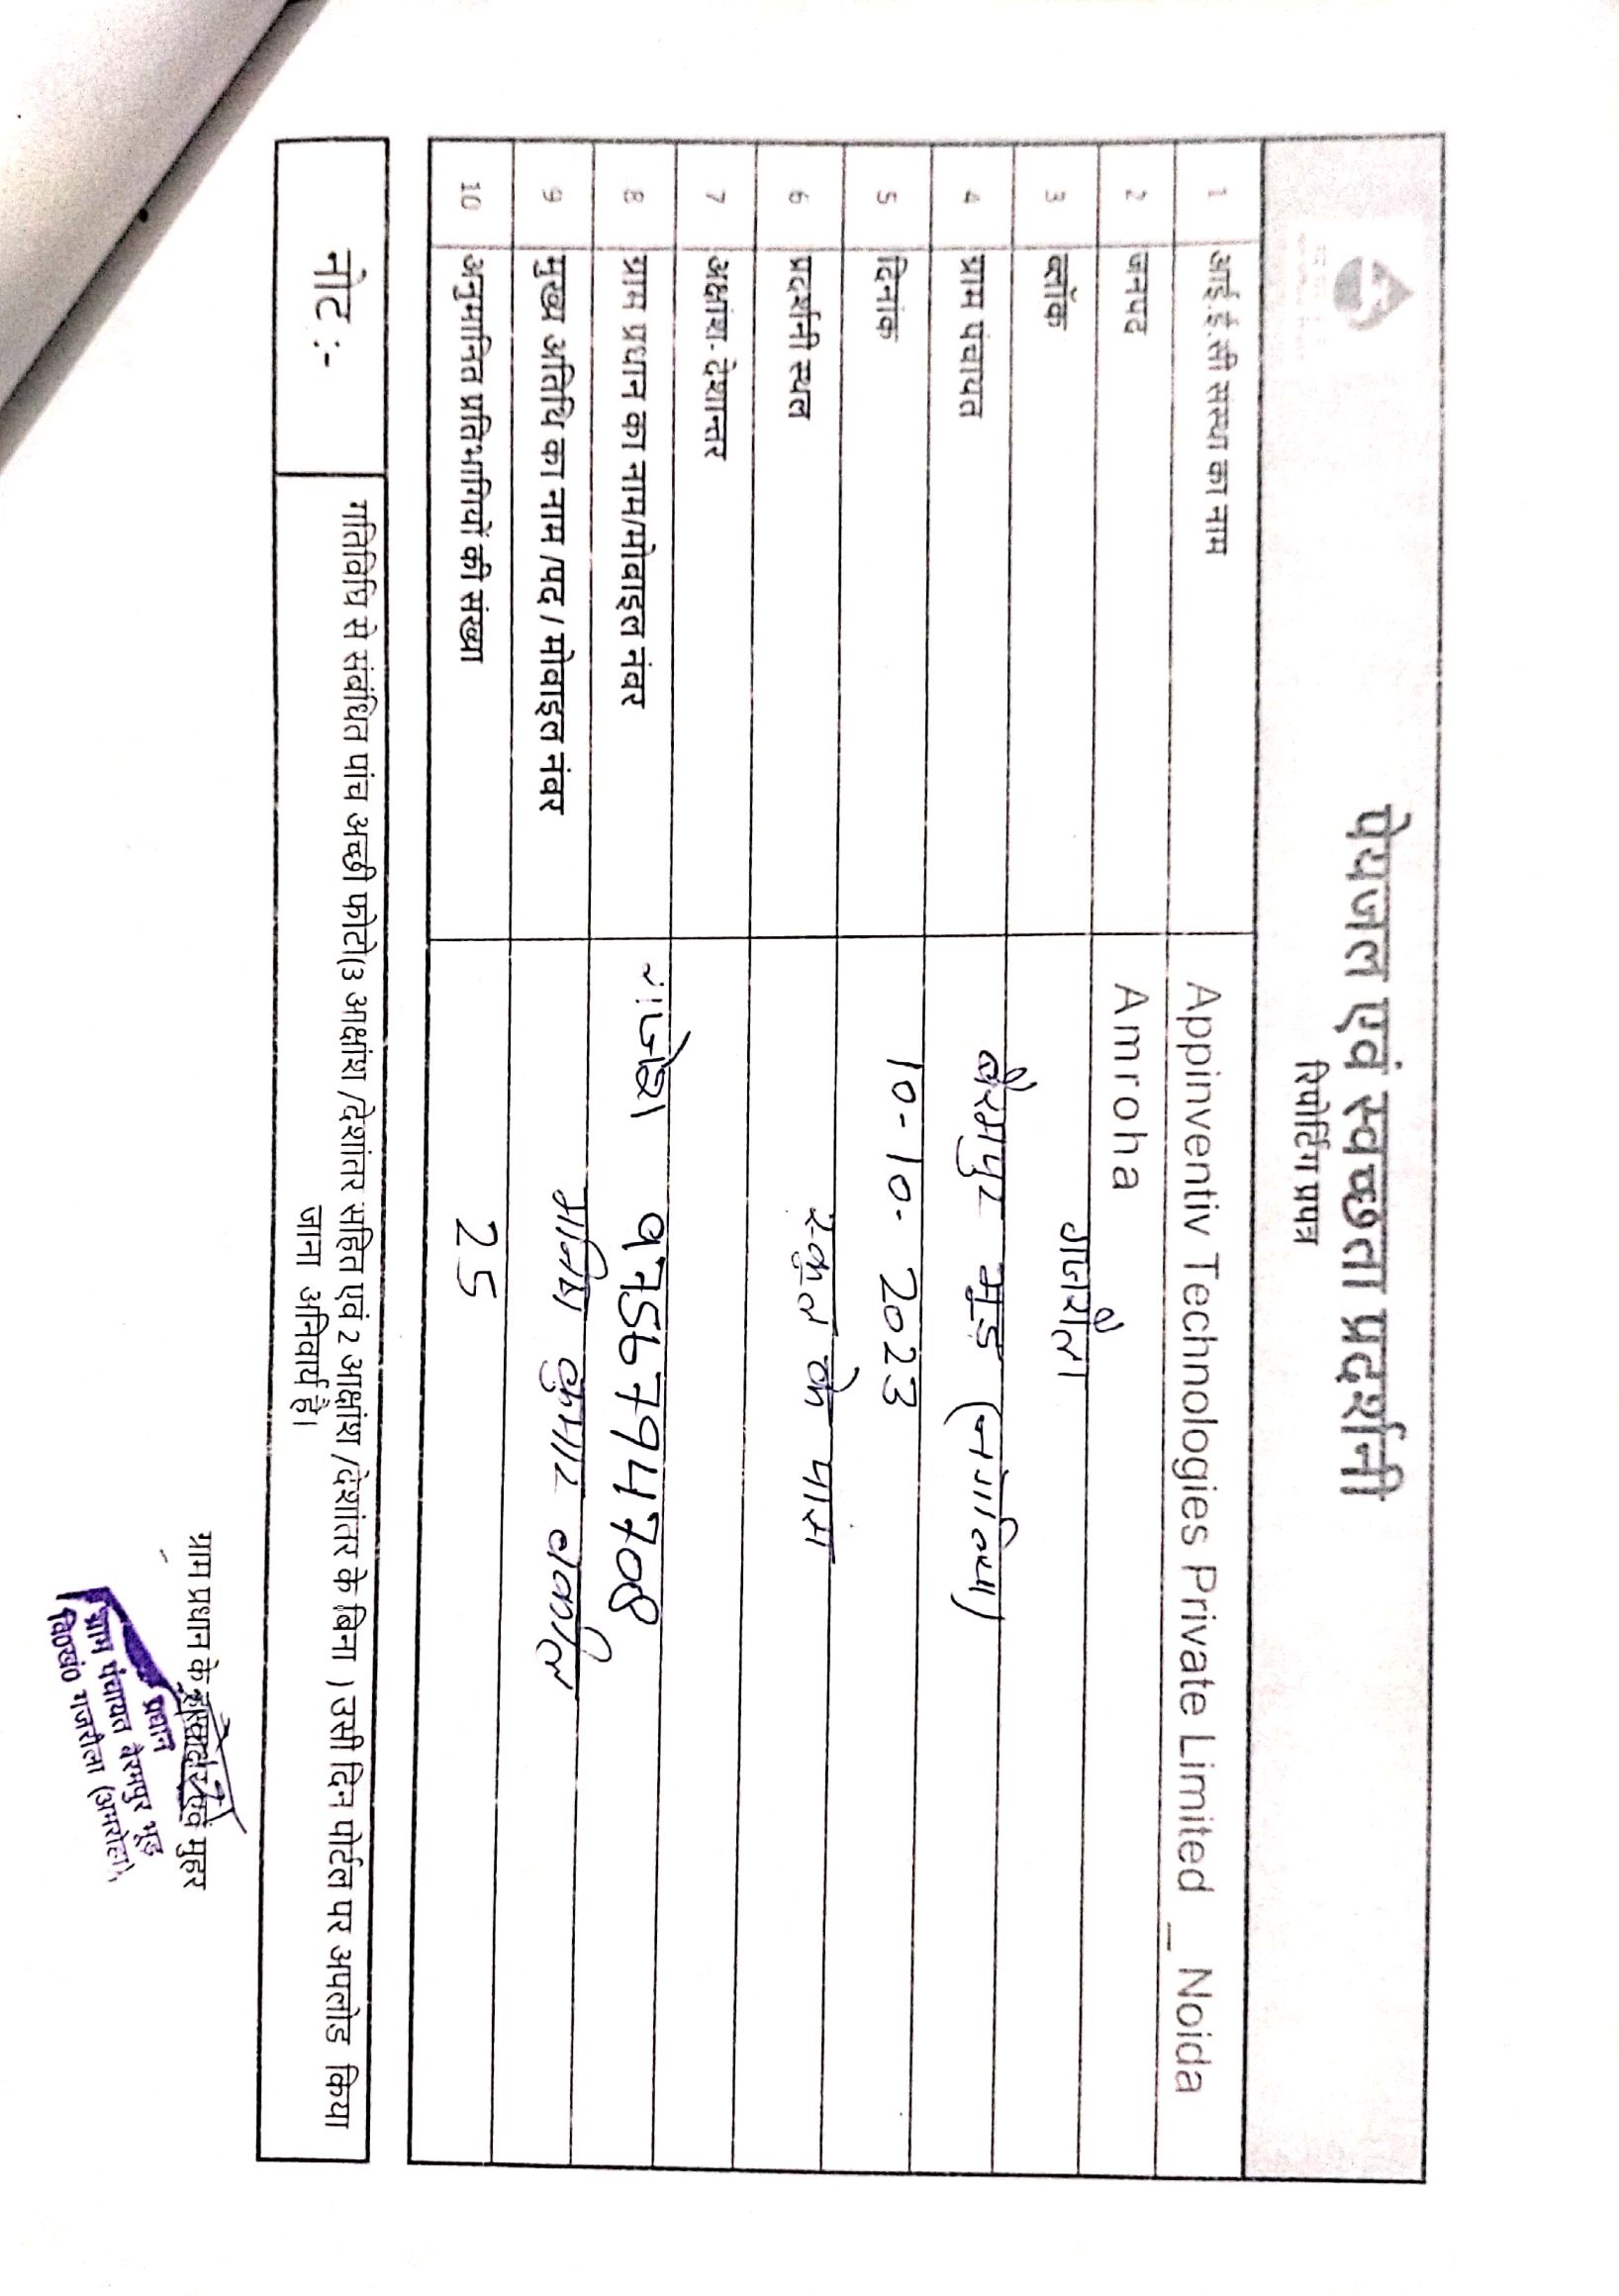 पेयजल एवं स्वच्छता प्रदर्शनी
रिपोर्टिंग प्रपत्र
1 आई.ई.सी सस्था का नाम Appinventiv Technologies Private Limited _ Noida
2 जनपद Amroha
3 ब्लॉक गजरौला
4 ग्राम पंचायत बैरमपुर भूड (नंगलिया)
5 दिनांक 10-10-2023
6 प्रदर्शनी स्थल स्कूल के पास
7 अक्षांश-देशान्तर
8 ग्राम प्रधान का नाम/मोबाइल नंबर
9 मुख्य अतिथि का नाम /पद / मोबाइल नंबर कुमार
10 अनुमानित प्रतिभागियों की संख्या 25
नोट :- गतिविधि से संबंधित पांच अच्छी फोटो(3 आक्षांश /देशांतर सहित एवं 2 आक्षांश /देशांतर के बिना ) उसी दिन पोर्टल पर अपलोड किया
जाना अनिवार्य है।
ग्राम प्रधान के हस्ताक्षर एवं मुहर
प्रधान
ग्राम पंचायत बैरमपुर भूड़
वि०खं० गजरौला (अमरोहा)